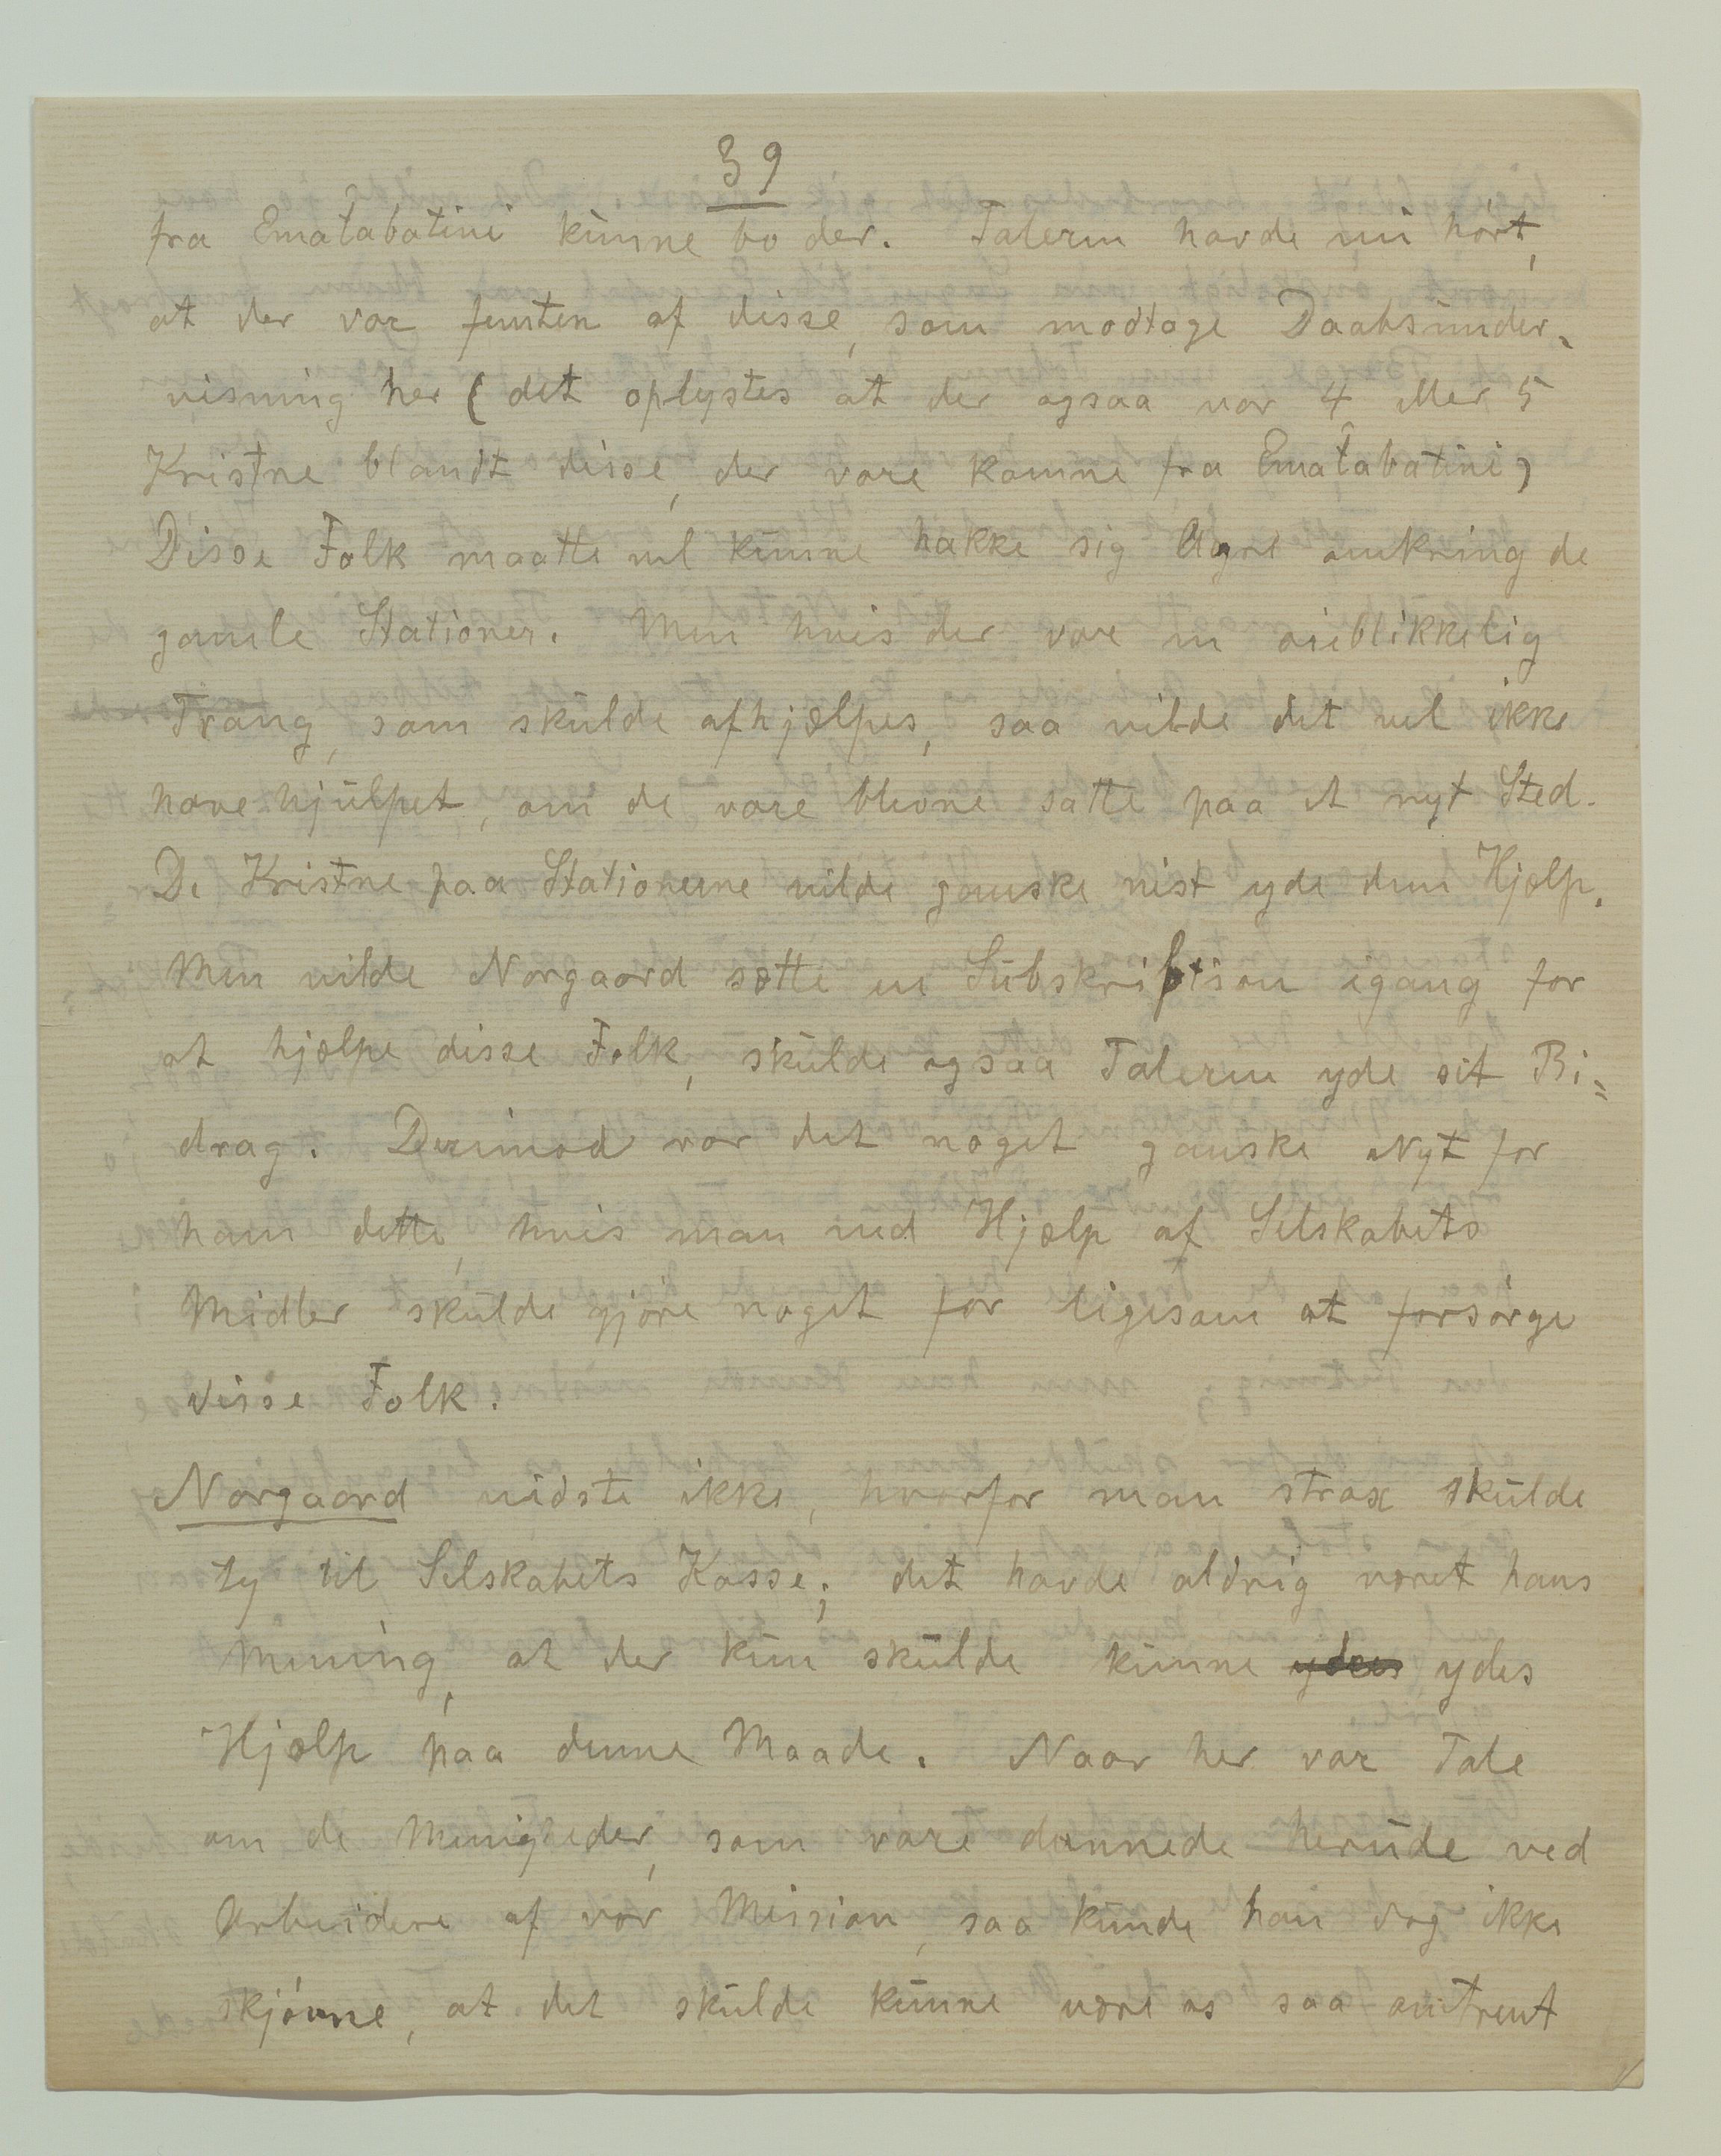 39
fra Ematabatini kunne bo der. Taleren havde nu hört,
at der var femten af disse, som modtoge Daabsunder-
visning her (det oplystes at der ogsaa var 4 eller 5
Kristne blandt disse, der vare komne fra Ematabatini)
Disse Folk maatte vel kunne hakke sig Agre omkring de
gamle Stationer. Men hvis der vare en øieblikkelig
Trang, som skulde afhjælpes, saa vilde det vel ikke
have hjulpet, om de vare blevne satte paa et nyt Sted.
De Kristne paa Stationerne vilde ganske vist yde dem Hjælp.
Men vilde Norgaard sætte en Subskription igang for
at hjælpe disse Folk, skulde ogsaa Taleren yde sit Bi=
drag. Derimod var det noget ganske Nyt for
ham dette, hvis man ved Hjælp af Selskabets
Midler skulde gjöre noget for ligesom at forsörge
disse Folk.
Norgaard vidste ikke, hvorfor man strax skulde
ty til Selskabets Kasse; det havde aldrig været hans
Mening, at der kun skulde kunne ydes
Hjælp paa denne Maade. Naar her var Tale
om de Menigheder, som vare dannede herude ved
Arbeidere af vor Mission, saa kunde han dog ikke
skjönne, at det skulde kunne være os saa omtrent